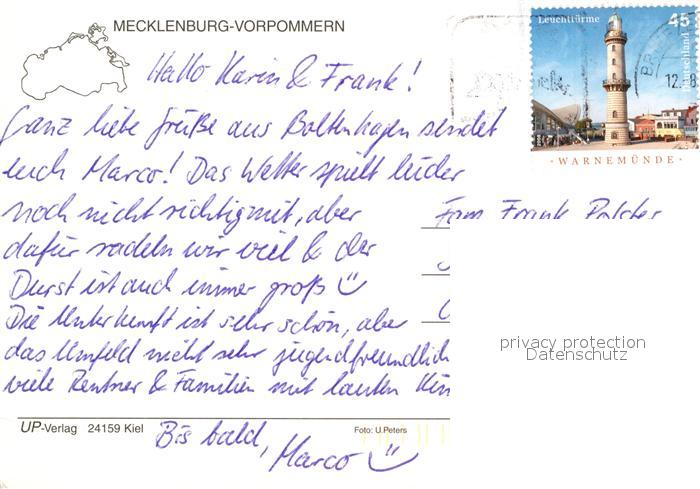 MECKLENBURG-VORPOMMERN
Leuchttürme
45
Deutschland
12. 8
WARNEMÜNDE
Hallo Karin & Frank!
Ganz liebe Grüße aus Boltenhagen sendet
euch Marco! Das Wetter spielt leider
noch nicht richtig mit, aber
dafür radeln wir viel & der
Durst ist auch immer groß
Die Unterkunft ist sehr schön, aber
das Umfeld nicht sehr jugendfreundlich
viele Rentner & Familien mit lauten Kin
Bis bald,
Marco
Frank
privacy protection
Datenschutz
UP-Verlag 24159 Kiel
Foto: U.Peters